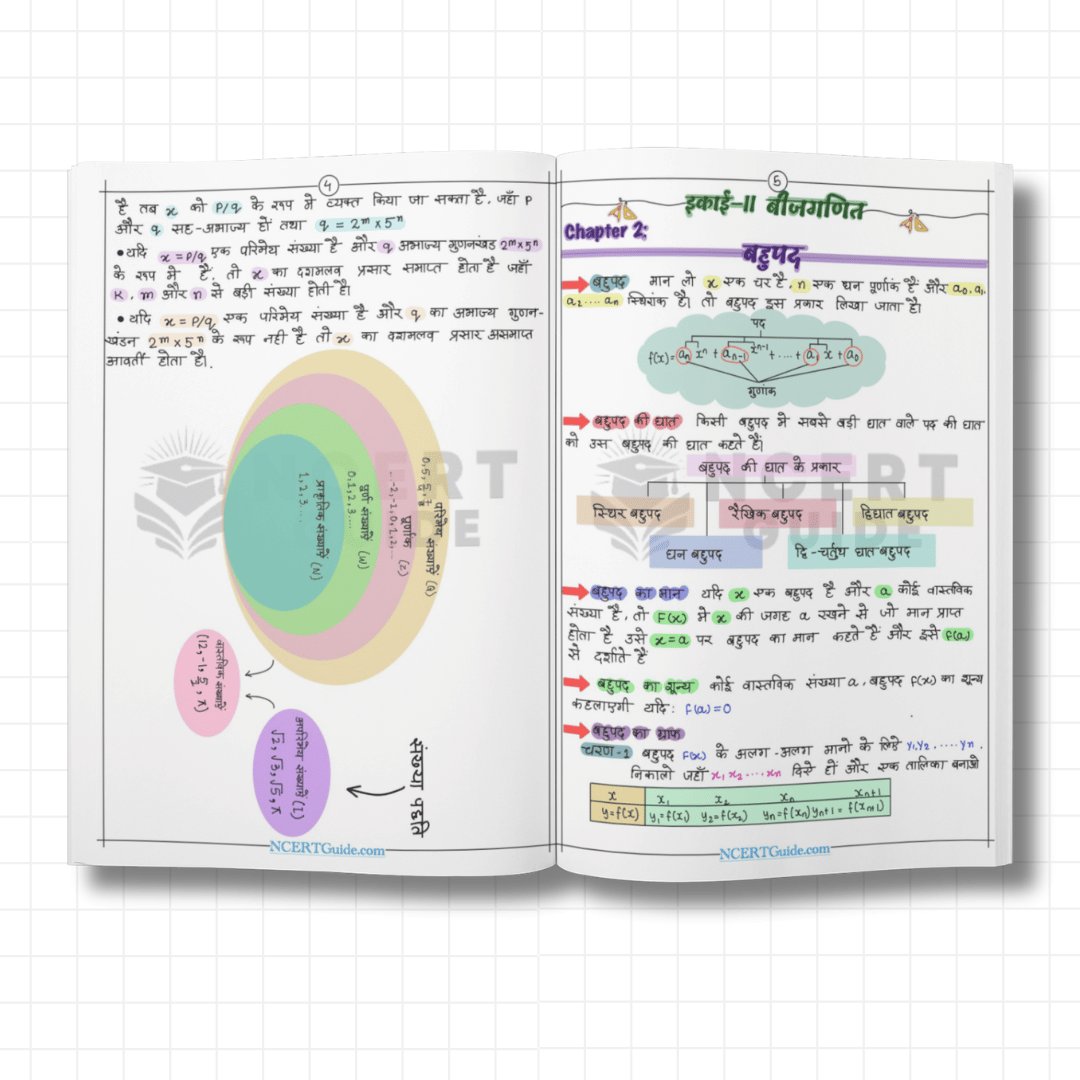 4
है तब x को P/q के रूप मे व्यक्त किया जा सकता है. जहाँ P
और q सह-अभाज्य हों तथा q = 2ᵐ×5ⁿ
• यदि x = P/q एक परिमेय संख्या है और q अभाज्य गुणनखंड 2ᵐ×5ⁿ
के रूप मे है. तो x का दशमलव प्रसार समाप्त होता है जहाँ
K, m और n से बड़ी संख्या होती है।
• यदि x = P/q एक परिमेय संख्या है और q का अभाज्य गुणन-
खंडन 2ᵐ×5ⁿ के रूप नही है तो x का दशमलव प्रसार असमाप्त
आवर्ती होता है।.
परिमेय संख्याएँ (Q)
पूर्णांक (Z)
...-2,-1,0,1,2,...
पूर्ण संख्याएँ (W)
0,1,2,3....
प्राकृतिक संख्याएँ (N)
1,2,3....
वास्तविक संख्याएँ
अपरिमेय संख्याएँ (I)
√2, √3, √5, π
संख्या पद्धति
NCERT GUIDE
NCERTGuide.com
5
इकाई-II बीजगणित
Chapter 2:
बहुपद
बहुपद मान लो x एक चर है, n एक धन पूर्णांक है और a₀, a₁,
a₂.... aₙ स्थिरांक है। तो बहुपद इस प्रकार लिखा जाता है।
पद
f(x) = aₙ xⁿ + aₙ₋₁ xⁿ⁻¹ + .... + a₁ x + a₀
गुणांक
बहुपद की घात किसी बहुपद मे सबसे बड़ी घात वाले पद की घात
को उस बहुपद की घात कहते है।
बहुपद की घात के प्रकार
स्थिर बहुपद रैखिक बहुपद द्विघात बहुपद
घन बहुपद द्वि-चर्तुथ घात बहुपद
बहुपद का मान यदि x एक बहुपद है और a कोई वास्तविक
संख्या है, तो F(x) मे x की जगह a रखने से जो मान प्राप्त
होता है उसे x=a पर बहुपद का मान कहते है और इसे f(a)
से दर्शाते है
बहुपद का शून्य कोई वास्तविक संख्या a, बहुपद f(x) का शून्य
कहलाएगी यदि: f(a)=0
बहुपद का ग्राफ
चरण-1 बहुपद F(x) के अलग-अलग मानो के लिए y₁,y₂.....yₙ.
निकालो जहाँ x₁,x₂....xₙ दिये हों और एक तालिका बनाओ
x x₁ x₂ xₙ xₙ+1
y=f(x) y₁=f(x₁) y₂=f(x₂) yₙ=f(xₙ) yₙ+1 = f(xₙ+1)
NCERT GUIDE
NCERTGuide.com